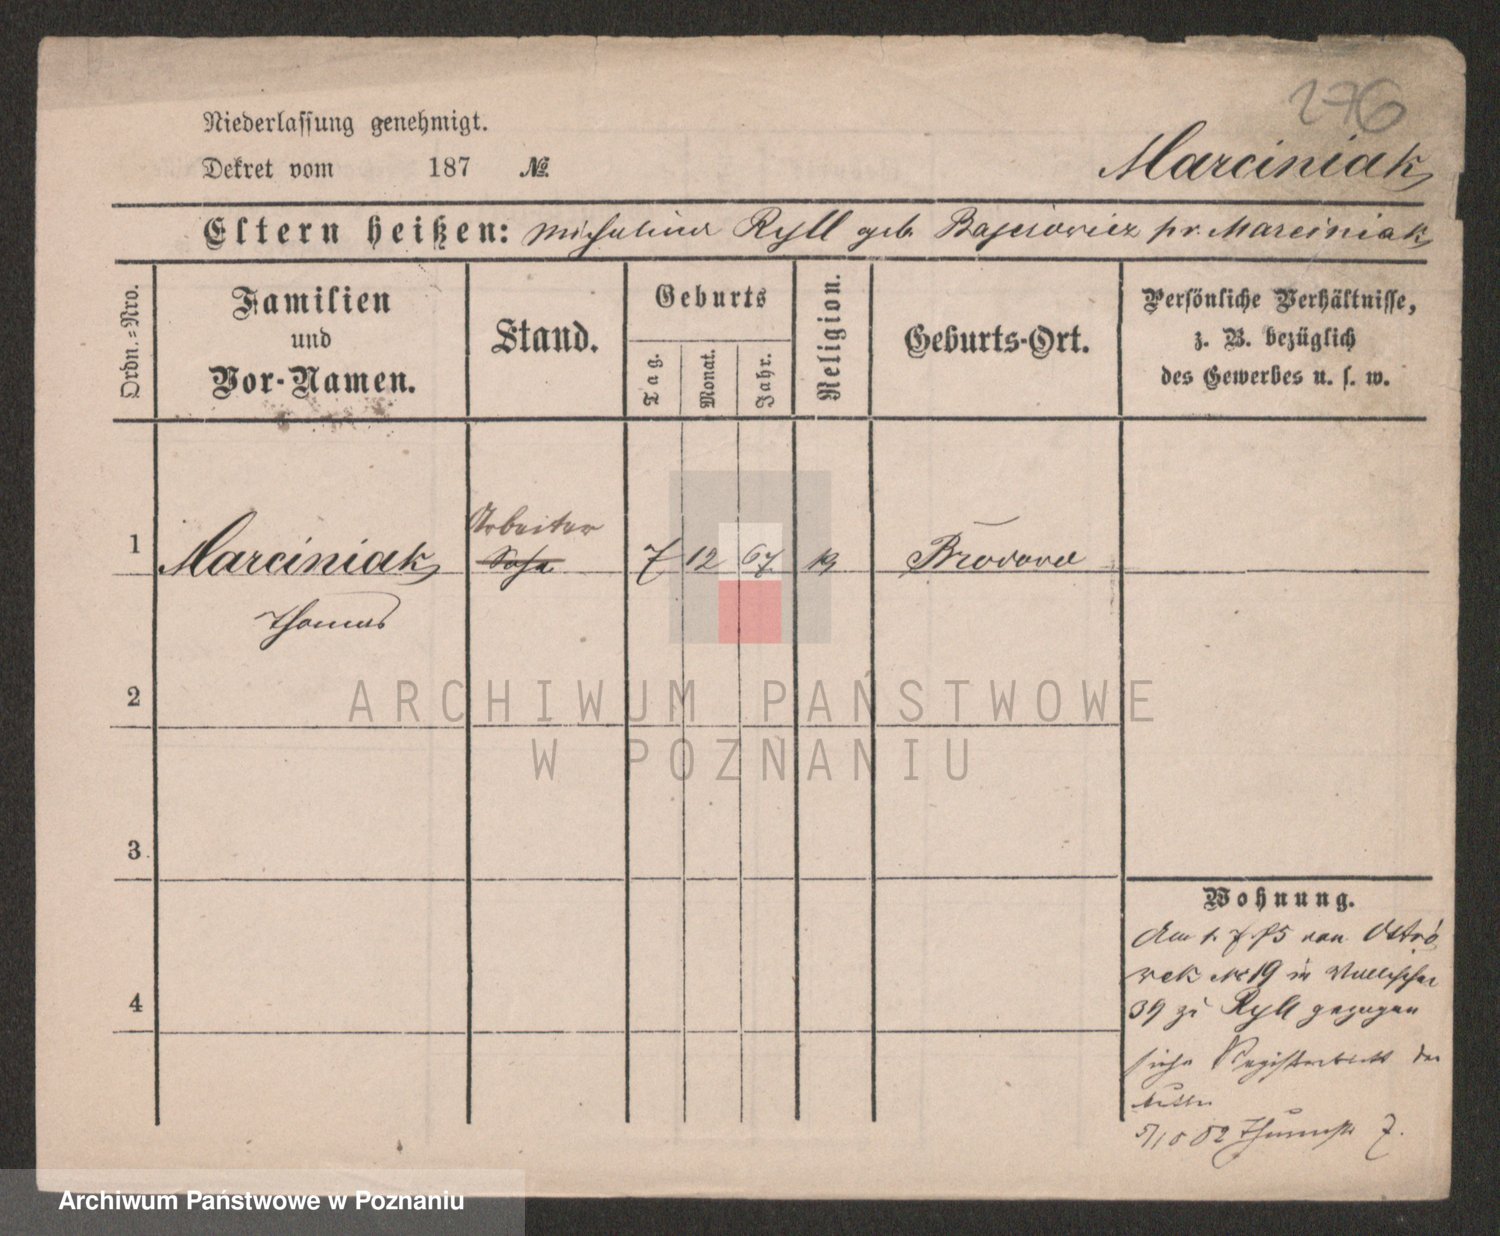 276
Niederlassung genehmigt.
Dekret vom 187 №
Marciniak
Eltern heißen: Michalina Ryll geb. Bajerowicz pr. Marciniak
Ordn.-Nro.
Familien
und
Vor-Namen.
Stand.
Geburts
Tag.
Monat.
Jahr.
Religion.
Geburts-Ort.
Persönliche Verhältnisse,
z. B. bezüglich
des Gewerbes u. s. w.
Arbeiter
1 Marciniak Sohn 7 12 67
Thomas
2
ARCHIWUM PAŃSTWOWE
W POZNANIU
3
4
Wohnung.
Am 1. 7. 85 von Ostró
wek No 19 in Wallischei
39 zu Ryll gezogen
siehe Registerblatt der
Mutter
7.
Archiwum Państwowe w Poznaniu